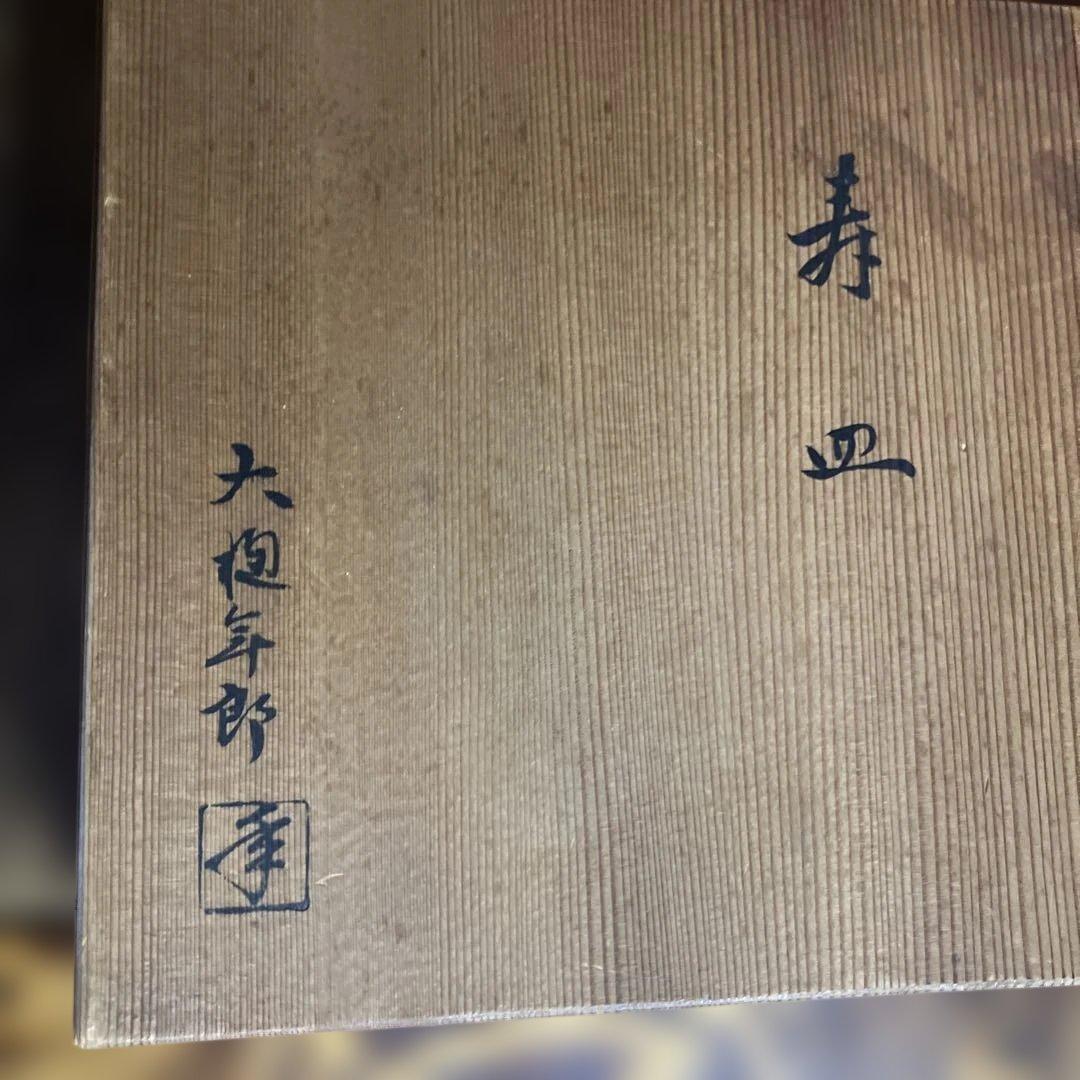 寿皿
大樋年郎
年